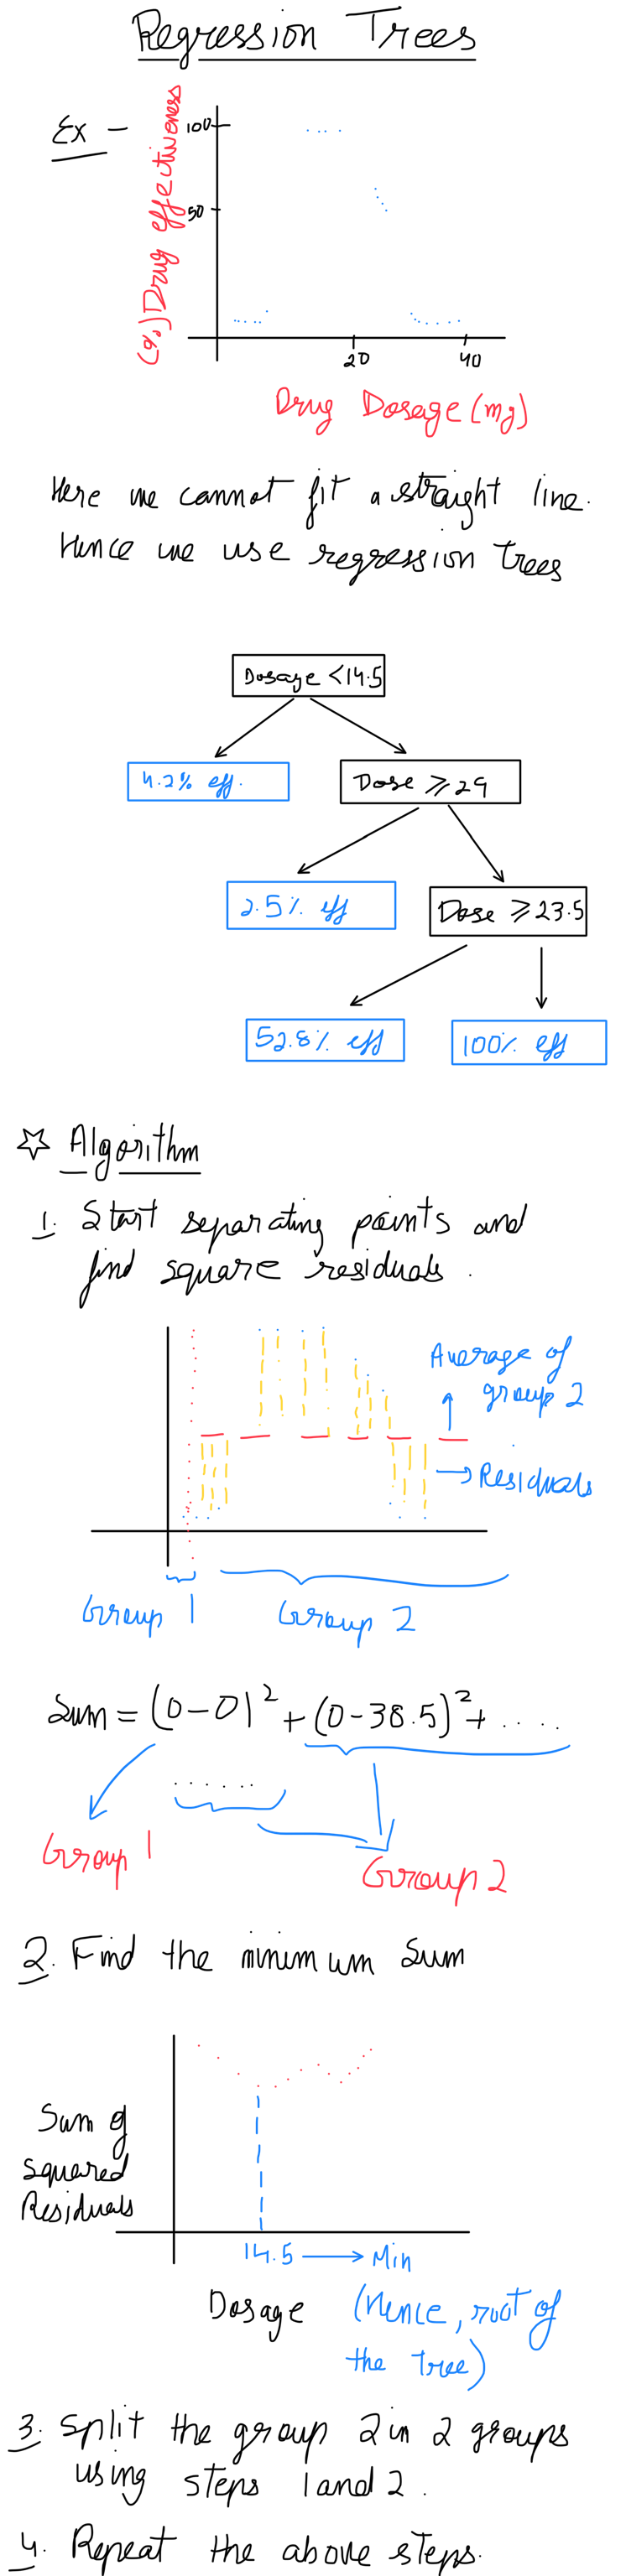 Regression Trees
Ex -
(%) Drug effectiveness
100
50
20 40
Drug Dosage (mg)
Here we cannot fit a straight line.
Hence we use regression trees
Dosage <14.5
4.2% eff.
Dose ⩾ 29
2.5% eff
Dose ⩾ 23.5
52.8% eff
100% eff
☆ Algorithm
1. Start separating points and
find square residuals.
Average of
group 2
→ Residuals
Group 1
Group 2
Sum = (0-0)² + (0-38.5)² + ....
......
Group 1
Group 2
2. Find the minimum Sum
Sum of
Squared
Residuals
14.5 → Min
Dosage (Hence, root of
the tree)
3. Split the group 2 in 2 groups
using steps 1 and 2.
4. Repeat the above steps.